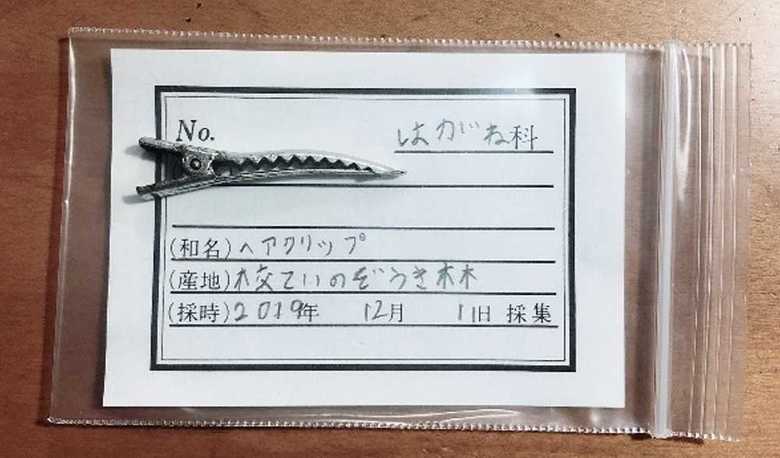 No.
はがね科
(和名)ヘアクリップ
(産地)校ていのぞうき林
(採時)2019年 12月 1日 採集